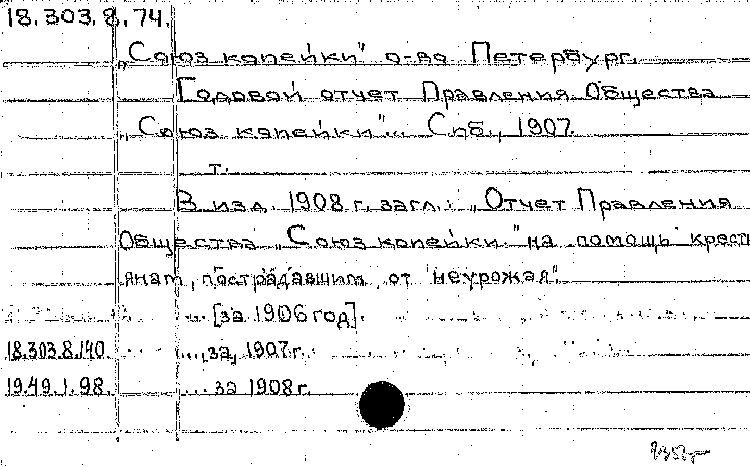 18.303.8.74.
„Союз копейки" о-во Петербург.
Годовой отчет Правления Общества
„Союз копейки"... Спб., 1907.
т.
В изд. 1908 г. загл.: „Отчет Правления
Общества „Союз копейки" на помощь крестьянам, пострадавшим от неурожая".
... [за 1906 год].
18.303.8.140. ... за 1907 г.
19.49.1.98. ... за 1908 г.